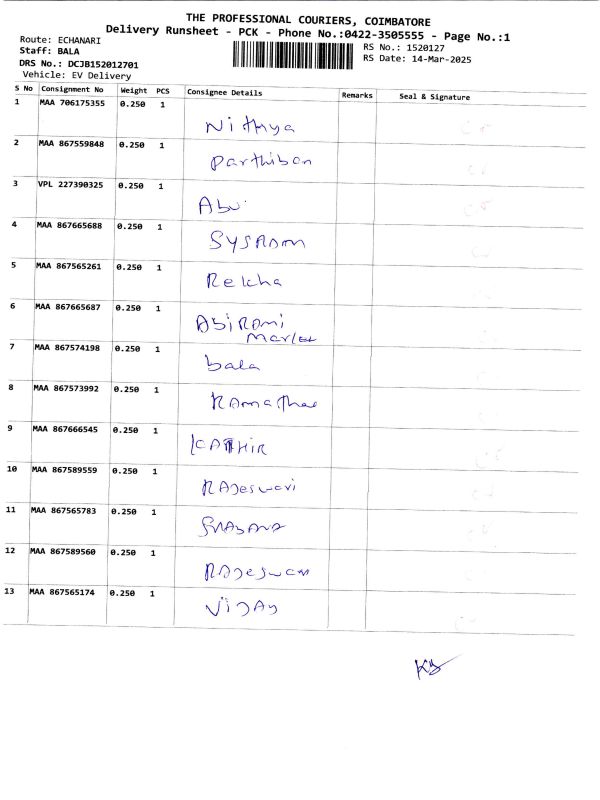 THE PROFESSIONAL COURIERS, COIMBATORE
Delivery Runsheet - PCK - Phone No.:0422-3505555 - Page No.:1
Route: ECHANARI
RS No.: 1520127
Staff: BALA
RS Date: 14-Mar-2025
DRS No.: DCJB152012701
Vehicle: EV Delivery
S No Consignment No Weight PCS Consignee Details Remarks Seal & Signature
1 MAA 706175355 0.250 1 Nithya
2 MAA 867559848 0.250 1 Parthiban
3 VPL 227390325 0.250 1
4 MAA 867665688 0.250 1
5 MAA 867565261 0.250 1 Rekha
6 MAA 867665687 0.250 1 Abirami
Market
7 MAA 867574198 0.250 1 bala
8 MAA 867573992 0.250 1
9 MAA 867666545 0.250 1 KATHIR
10 MAA 867589559 0.250 1 RAJeswari
11 MAA 867565783 0.250 1
12 MAA 867589560 0.250 1
13 MAA 867565174 0.250 1 VIJAY